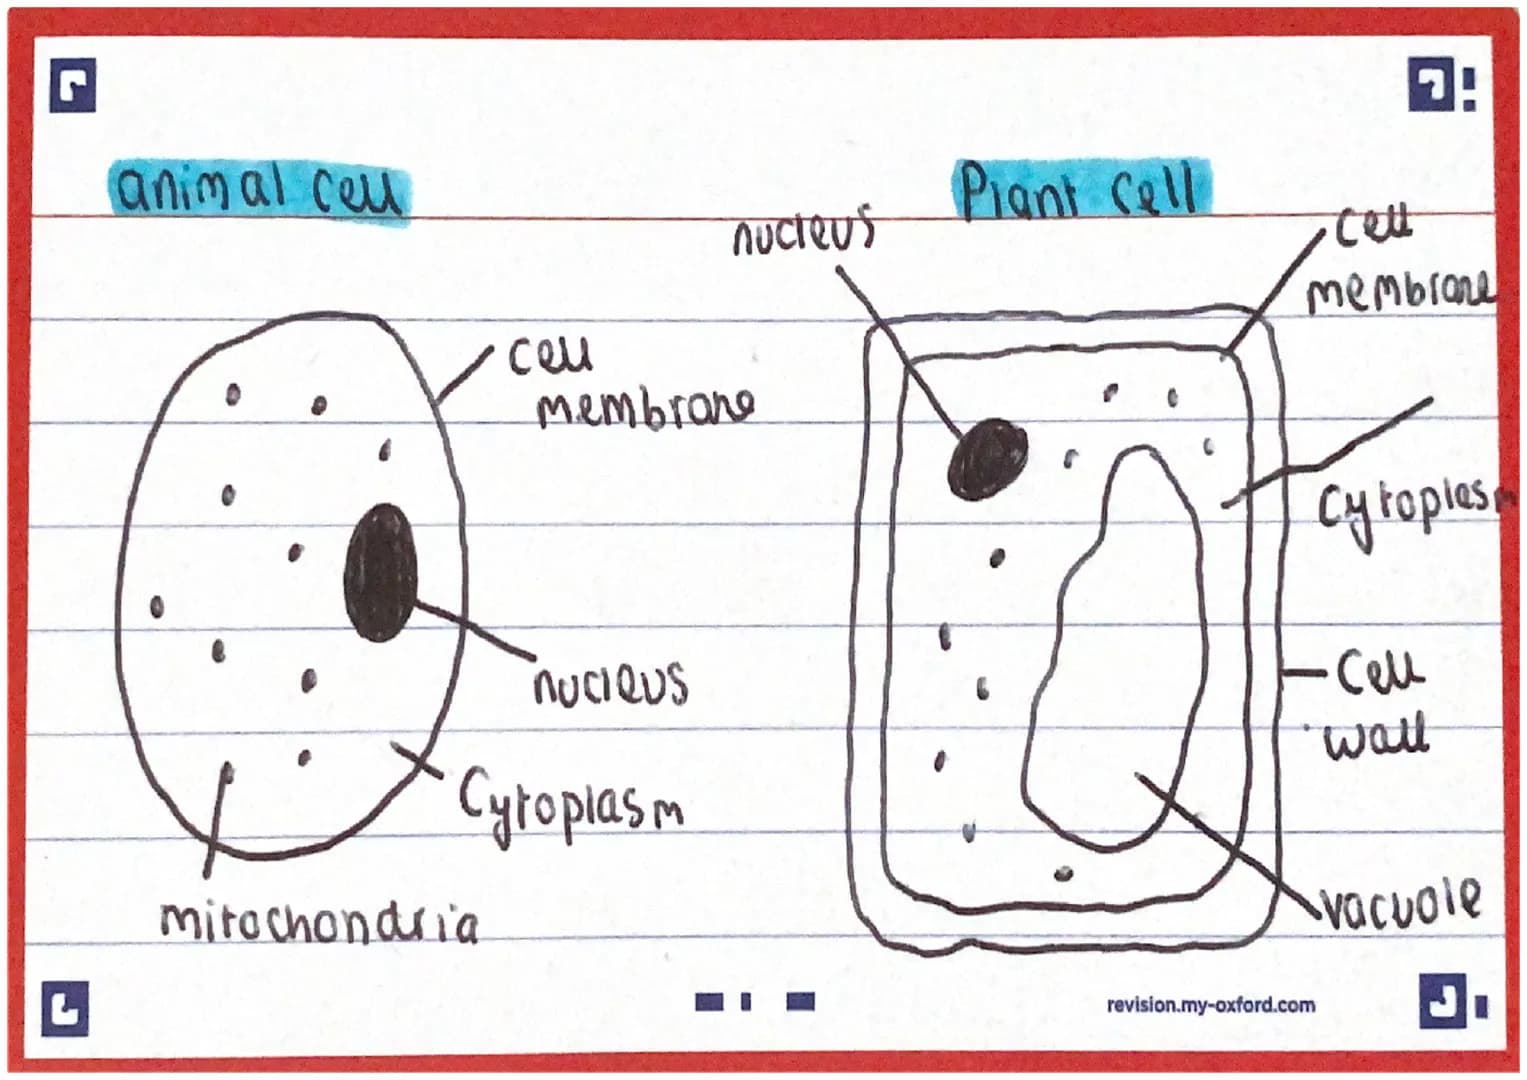 animal cell
Plant cell
nucleus
cell
membrane
cell
membrane
Cytoplasm
nucleus
Cell
wall
Cytoplasm
vacuole
mitochondria
revision.my-oxford.com